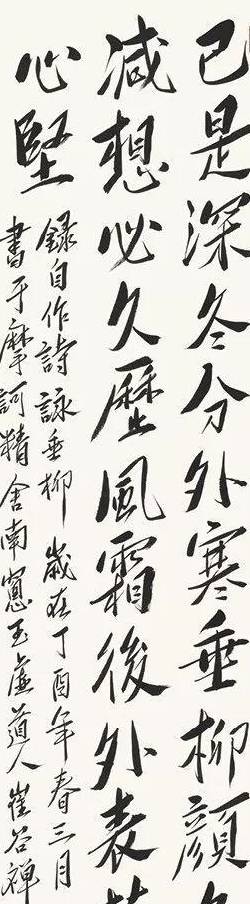 已是深冬分外寒垂柳顏
減想必久歷風霜後外表
心堅
錄自作詩詠垂柳 歲在丁酉年春三月
書于摩訶精舍南窻玉虛道人崔谷禪